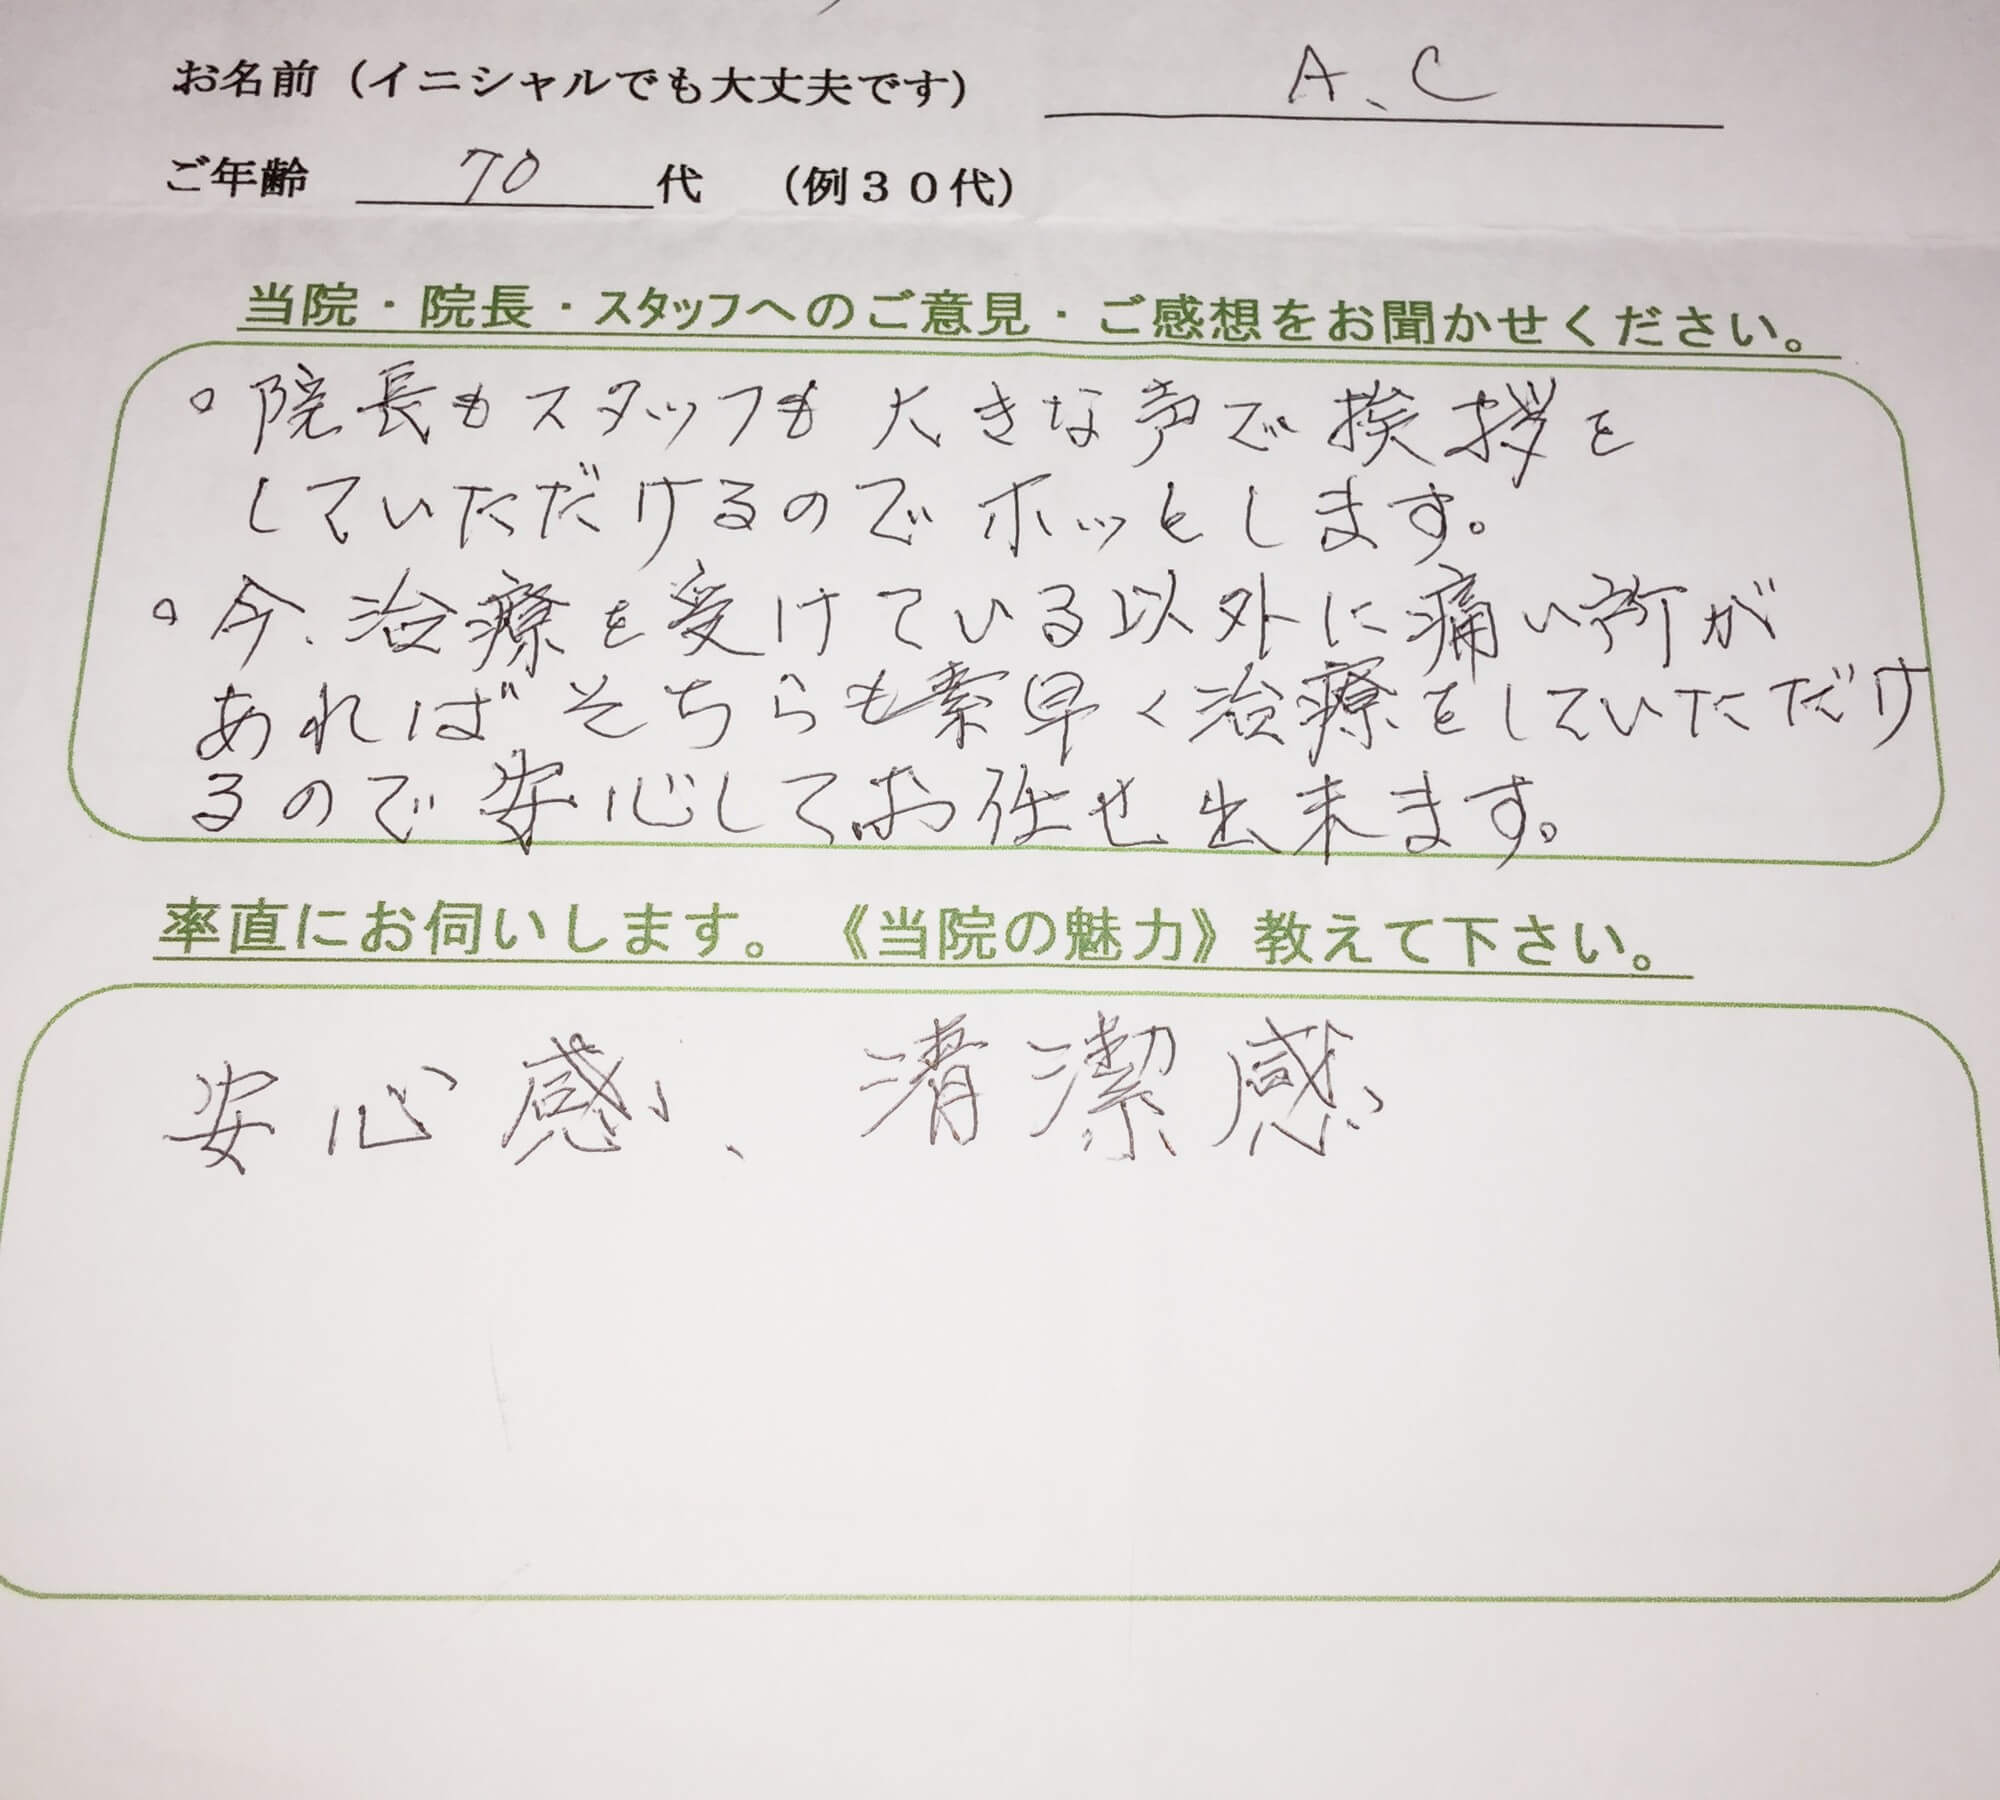 お名前（イニシャルでも大丈夫です） A、C
ご年齢 70 代 （例３０代）
当院・院長・スタッフへのご意見・ご感想をお聞かせください。
。院長もスタッフも大きな声で挨拶を
していただけるのでホッとします。
。今、治療を受けている以外に痛い所が
あればそちらも素早く治療をしていただけ
るので安心してお任せ出来ます。
率直にお伺いします。《当院の魅力》教えて下さい。
安心感、清潔感